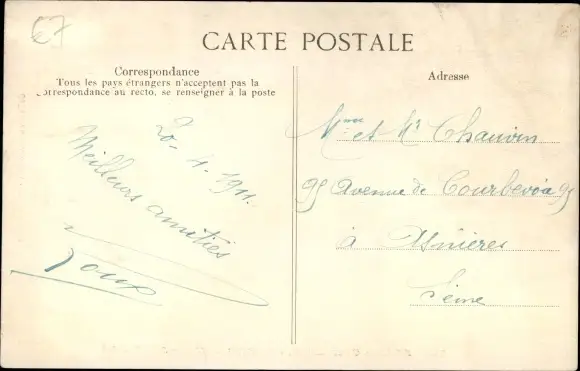 67
CARTE POSTALE
Correspondance
Tous les pays étrangers n'acceptent pas la
correspondance au recto, se renseigner à la poste
Adresse
20-1-1911.
Meilleurs amitiés
Mme et Mr Chauvin
95 Avenue de Courbevoie 95
à Asnières
Seine